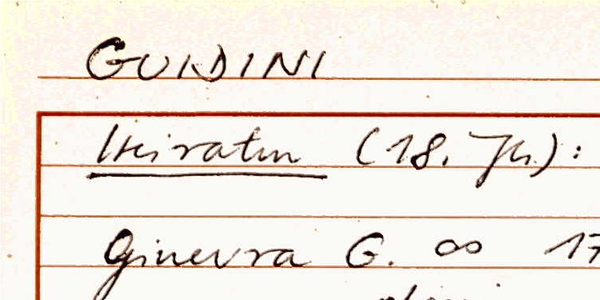 GUIDINI
Heiraten (18. Jh.):
Ginevra G. ∞ 17